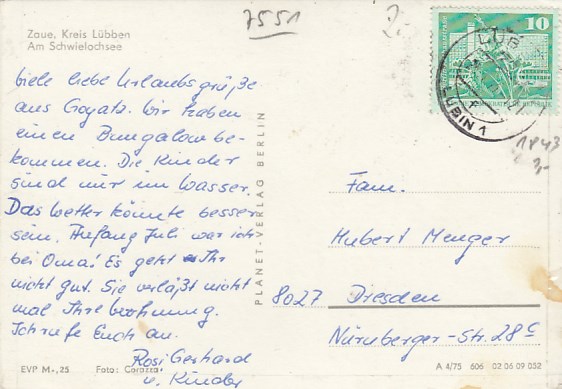 7551
2.-
Zaue, Kreis Lübben
Am Schwielochsee
10
LÜB
1 NIEDE
DEMOKRATISCHE REPUBLIK
1843
3,-
Viele liebe Urlaubsgrüße
aus Goyatz. Wir haben
einen Bungalow be-
kommen. Die Kinder
sind nur im Wasser.
Das Wetter könnte besser
sein. Anfang Juli war ich
bei Oma! Es geht Ihr
nicht gut. Sie verläßt nicht
mal Ihre Wohnung.
Ich rufe Euch an.
Rosi Gerhard
u. Kinder
PLANET-VERLAG BERLIN
Fam.
Hubert Menger
8027 Dresden
Nürnberger-Str. 28c
EVP M -,25 Foto: Corazza
A 4/75 606 02 06 09 052